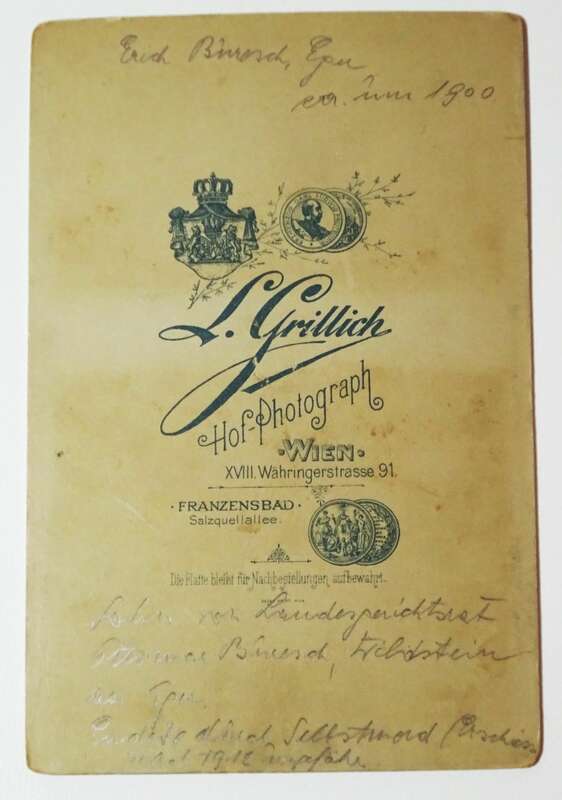 Erich Buresch, Eger
ca. um 1900
L. Grillich
Hof-Photograph
·WIEN·
XVIII. Währingerstrasse 91.
· FRANZENSBAD ·
Salzquellallee.
Die Platte bleibt für Nachbestellungen aufbewahrt.
Sohn von Landesgerichtsrat
Buresch, Wildstein
Eger,
Endete durch Selbstmord
1912